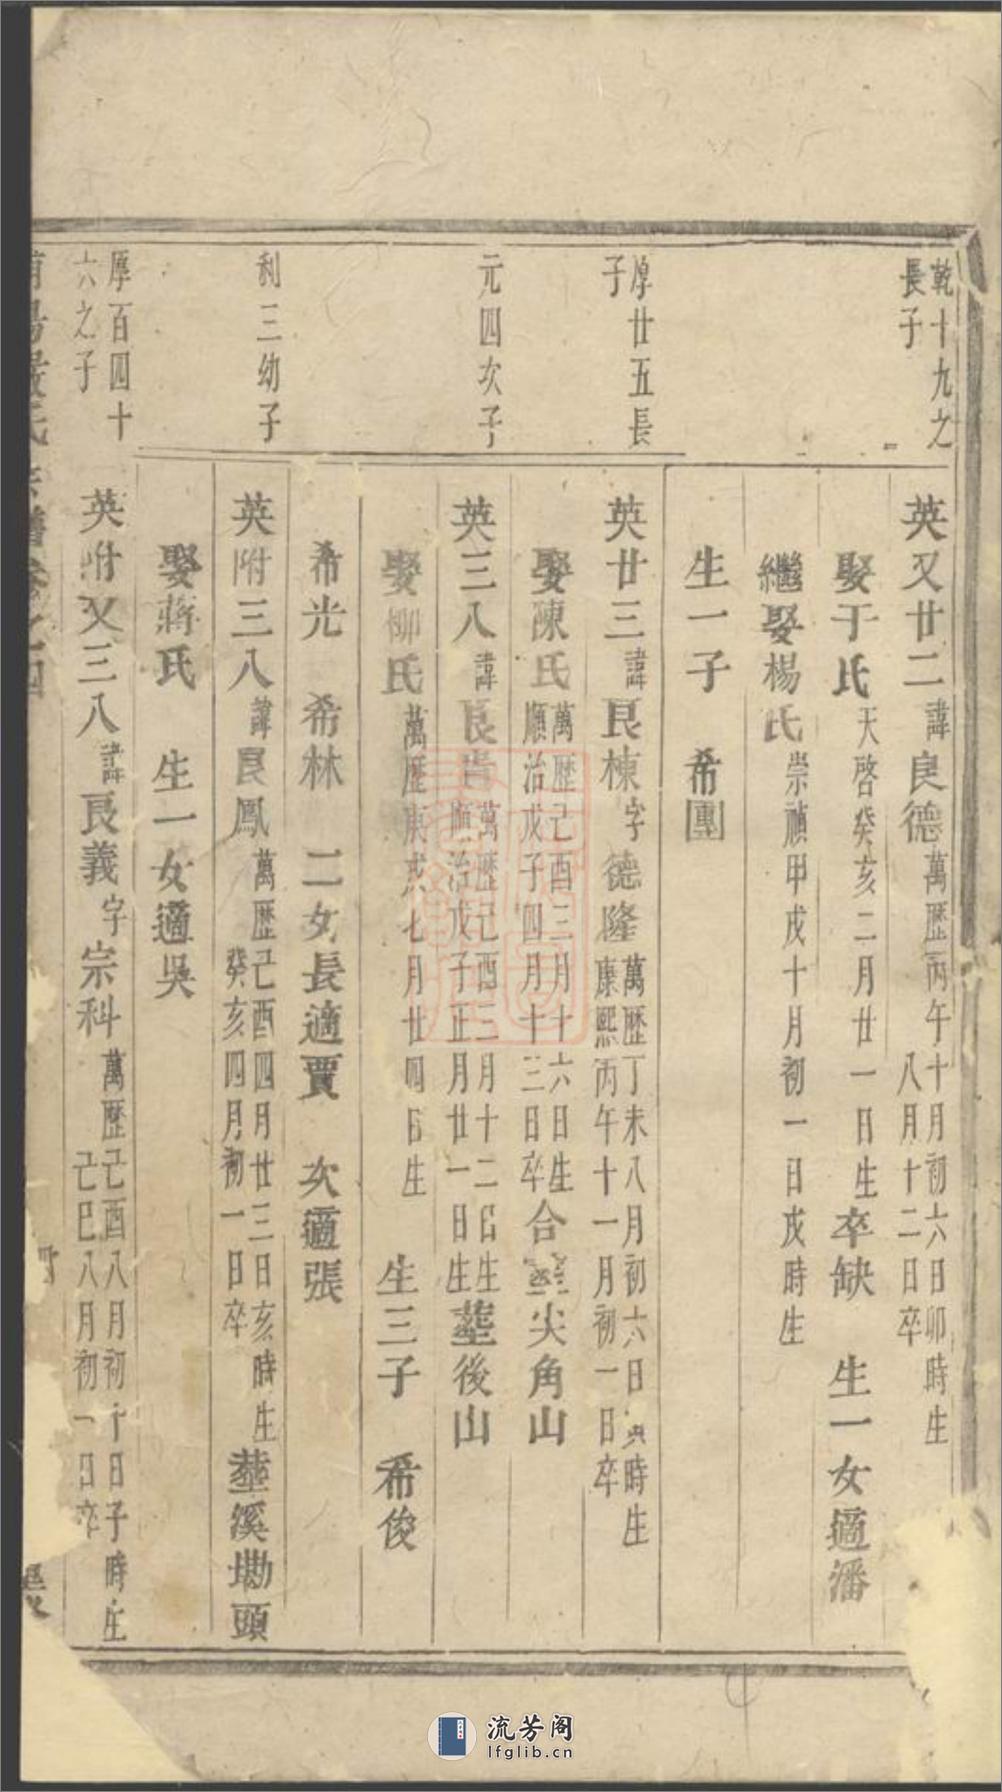 乾十九之
長子
英又廿二諱良德萬歷丙午十月初六日卯時生
八月十二日卒
娶于氏天啓癸亥二月廿一日生卒缺 生一女適潘
繼娶楊氏崇禎甲戌十月初一日戌時生
生一子 希團
厚廿五長
子
英廿三諱良棟字德隆萬歷丁未八月初六日寅時生
康熙丙午十一月初一日卒
娶陳氏萬歷己酉三月十六日生
順治戊子四月十三日卒合塟尖角山
元四次子
英三八諱良貴萬歷己酉三月十二日生
順治戊子正月廿一日生塟後山
娶柳氏萬歷庚戌七月廿四日生 生三子 希俊
希光 希林 二女長適賈 次適張
利三幼子
英附三八諱良鳳萬歷己酉四月廿三日亥時生
癸亥四月初一日卒 塟溪墈頭
娶蔣氏 生一女適吳
厚百四十
六之子
英附又三八諱良義字宗科萬歷己酉八月初十日子時生
己巳八月初一日卒
陽嚴氏宗譜卷之四
流芳阁
lfglib.cn